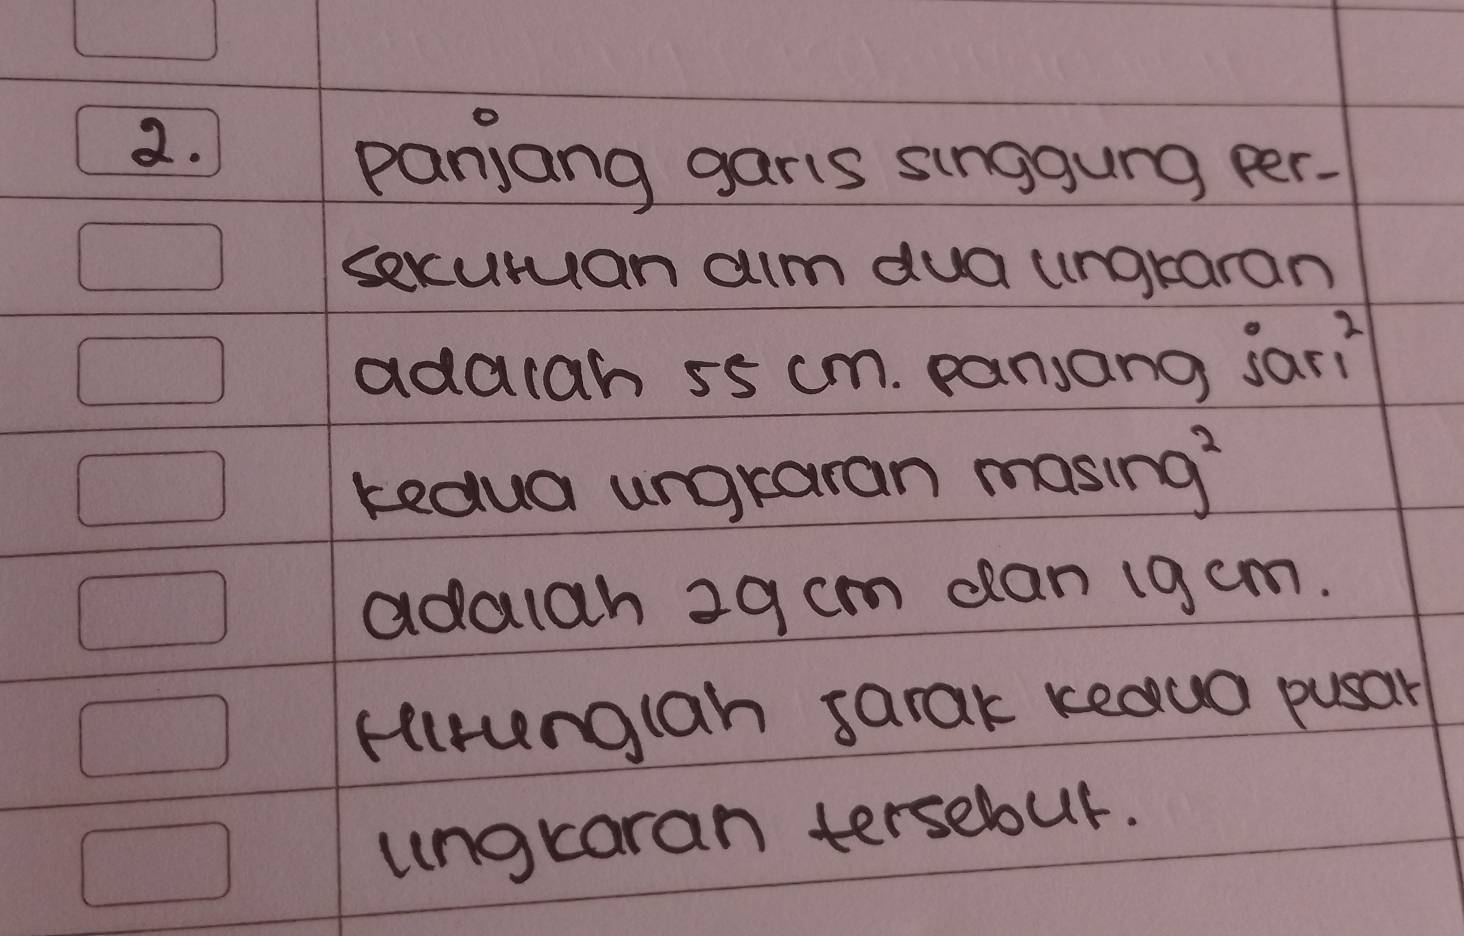 2. panjang garis singgung per-
sekutuan dlm dua lingkaran
adalah 55 cm. panjang jari²
kedua lingkaran masing²
adalah 29 cm dan 19 cm.
Hitunglah jarak kedua pusat
lingkaran tersebut.